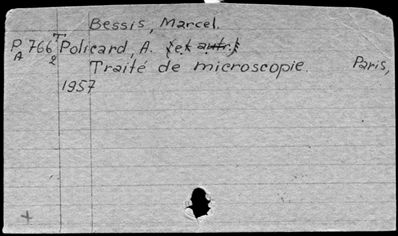 Bessis, Marcel.
PA 766 T2 Policard, A. {et autr.}
Traité de microscopie. Paris,
1957